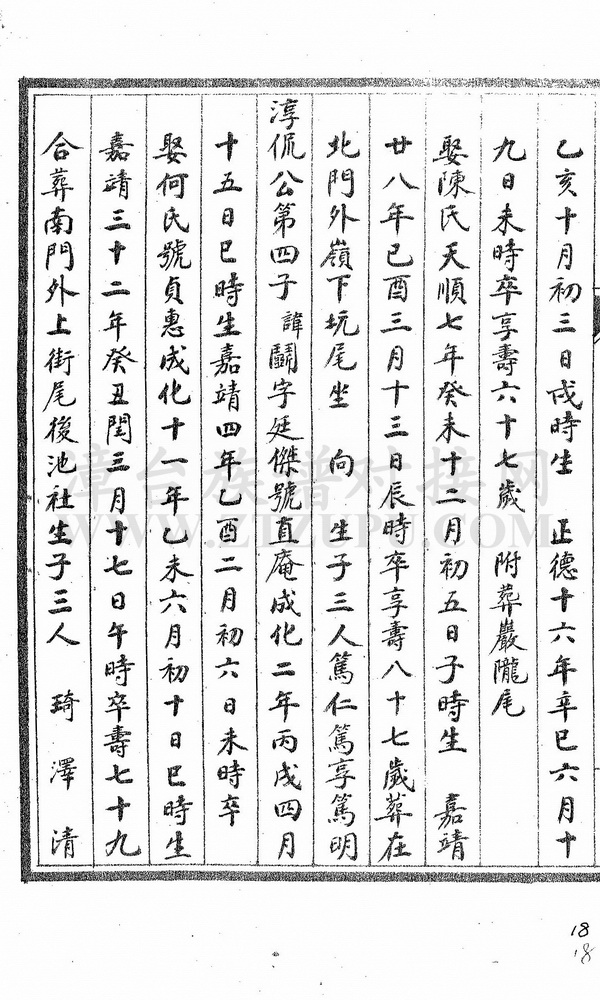 乙亥十月初三日戌時生 正德十六年辛巳六月十
九日未時卒享壽六十七歲 附葬巖隴尾
娶陳氏天順七年癸未十二月初五日子時生 嘉靖
廿八年己酉三月十三日辰時卒享壽八十七歲葬在
北門外嶺下坑尾坐 向 生子三人篤仁篤享篤明
淳侃公第四子 諱鬪字廷傑號直庵成化二年丙戌四月
十五日巳時生嘉靖四年乙酉二月初六日未時卒
娶何氏號貞惠成化十一年乙未六月初十日巳時生
嘉靖三十二年癸丑閏三月十七日午時卒壽七十九
合葬南門外上街尾後池社生子三人 琦 澤 清
漳台族谱对接网
WWW.ZTZUPU.COM
18
18